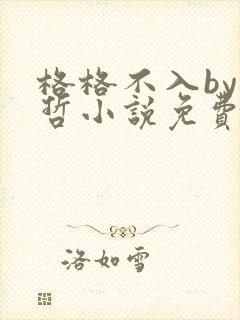 格格不入by
哲小說免費
洛如雪